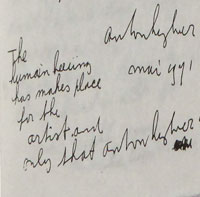 The
humain heeing
has makes place
for the
artist and
only that anton heyboer
anton heyboer
mai 991